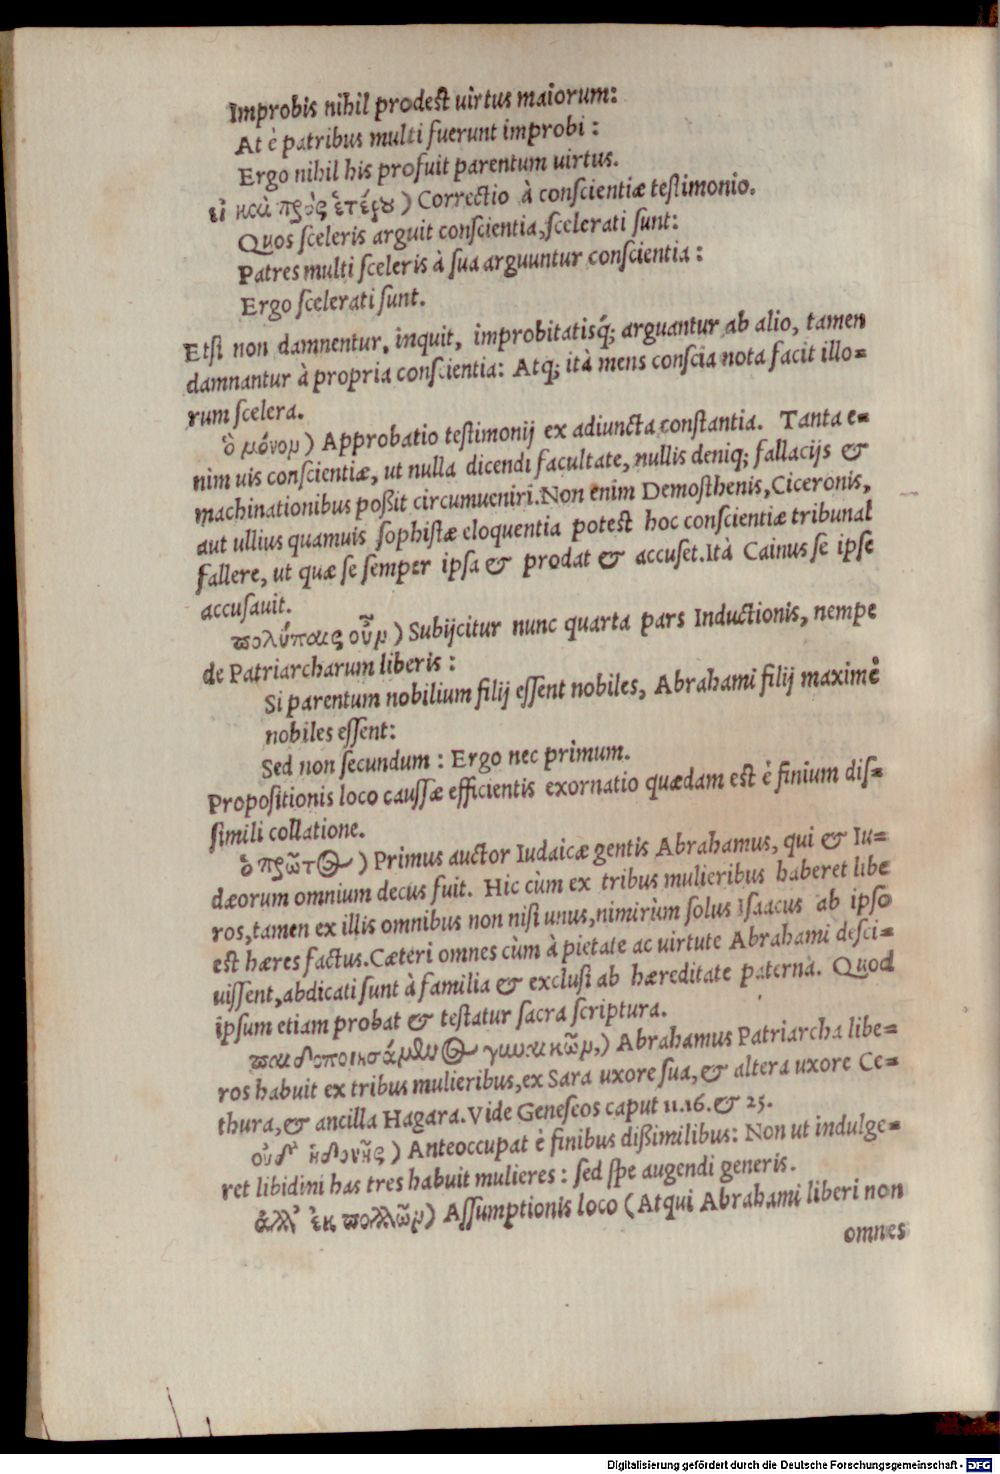 Improbis nihil prodest uirtus maiorum:
At è patribus multi fuerunt improbi :
Ergo nihil his profuit parentum uirtus.
εἰ καὶ πρὸς ἑτέρου ) Correctio à conscientiæ testimonio.
Quos sceleris arguit conscientia, scelerati sunt:
Patres multi sceleris à sua arguuntur conscientia :
Ergo scelerati sunt.
Etsi non damnentur, inquit, improbitatisq́; arguantur ab alio, tamen
damnantur à propria conscientia: Atq; ità mens conscia nota facit illo=
rum scelera.
ὁ μόνον ) Approbatio testimonij ex adiuncta constantia. Tanta e=
nim uis conscientiæ, ut nulla dicendi facultate, nullis deniq; fallacijs &
machinationibus poßit circumueniri. Non enim Demosthenis, Ciceronis,
aut ullius quamuis sophistæ eloquentia potest hoc conscientiæ tribunal
fallere, ut quæ se semper ipsa & prodat & accuset. Ità Cainus se ipse
accusauit.
πολύπαις οὖν ) Subijcitur nunc quarta pars Inductionis, nempe
de Patriarcharum liberis :
Si parentum nobilium filij essent nobiles, Abrahami filij maximè
nobiles essent:
Sed non secundum : Ergo nec primum.
Propositionis loco caussæ efficientis exornatio quædam est è finium dis=
simili collatione.
ὁ πρῶτος ) Primus auctor Iudaicæ gentis Abrahamus, qui & Iu=
dæorum omnium decus fuit. Hic cùm ex tribus mulieribus haberet libe
ros, tamen ex illis omnibus non nisi unus, nimirùm solus Isaacus ab ipso
est hæres factus. Cæteri omnes cùm à pietate ac uirtute Abrahami desci=
uissent, abdicati sunt à familia & exclusi ab hæreditate paterna. Quod
ipsum etiam probat & testatur sacra scriptura.
παιδοποιησάμενος γυναικῶν,) Abrahamus Patriarcha libe=
ros habuit ex tribus mulieribus, ex Sara uxore sua, & altera uxore Ce=
thura, & ancilla Hagara. Vide Geneseos caput 11.16. & 25.
οὐδ' ἡδονῆς ) Anteoccupat è finibus dißimilibus: Non ut indulge=
ret libidini has tres habuit mulieres : sed spe augendi generis.
ἀλλ' ἐκ πολλῶν) Assumptionis loco (Atqui Abrahami liberi non
omnes
Digitalisierung gefördert durch die Deutsche Forschungsgemeinschaft - DFG